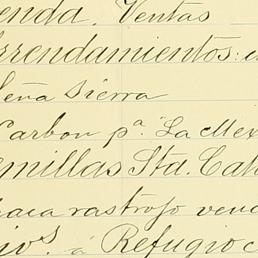 enda. Ventas
rrendamientos: e
eña Sierra
Carbon pª "La Mex
emillas Sta. Cat
aca rastrojo vend
jos. á Refugio c